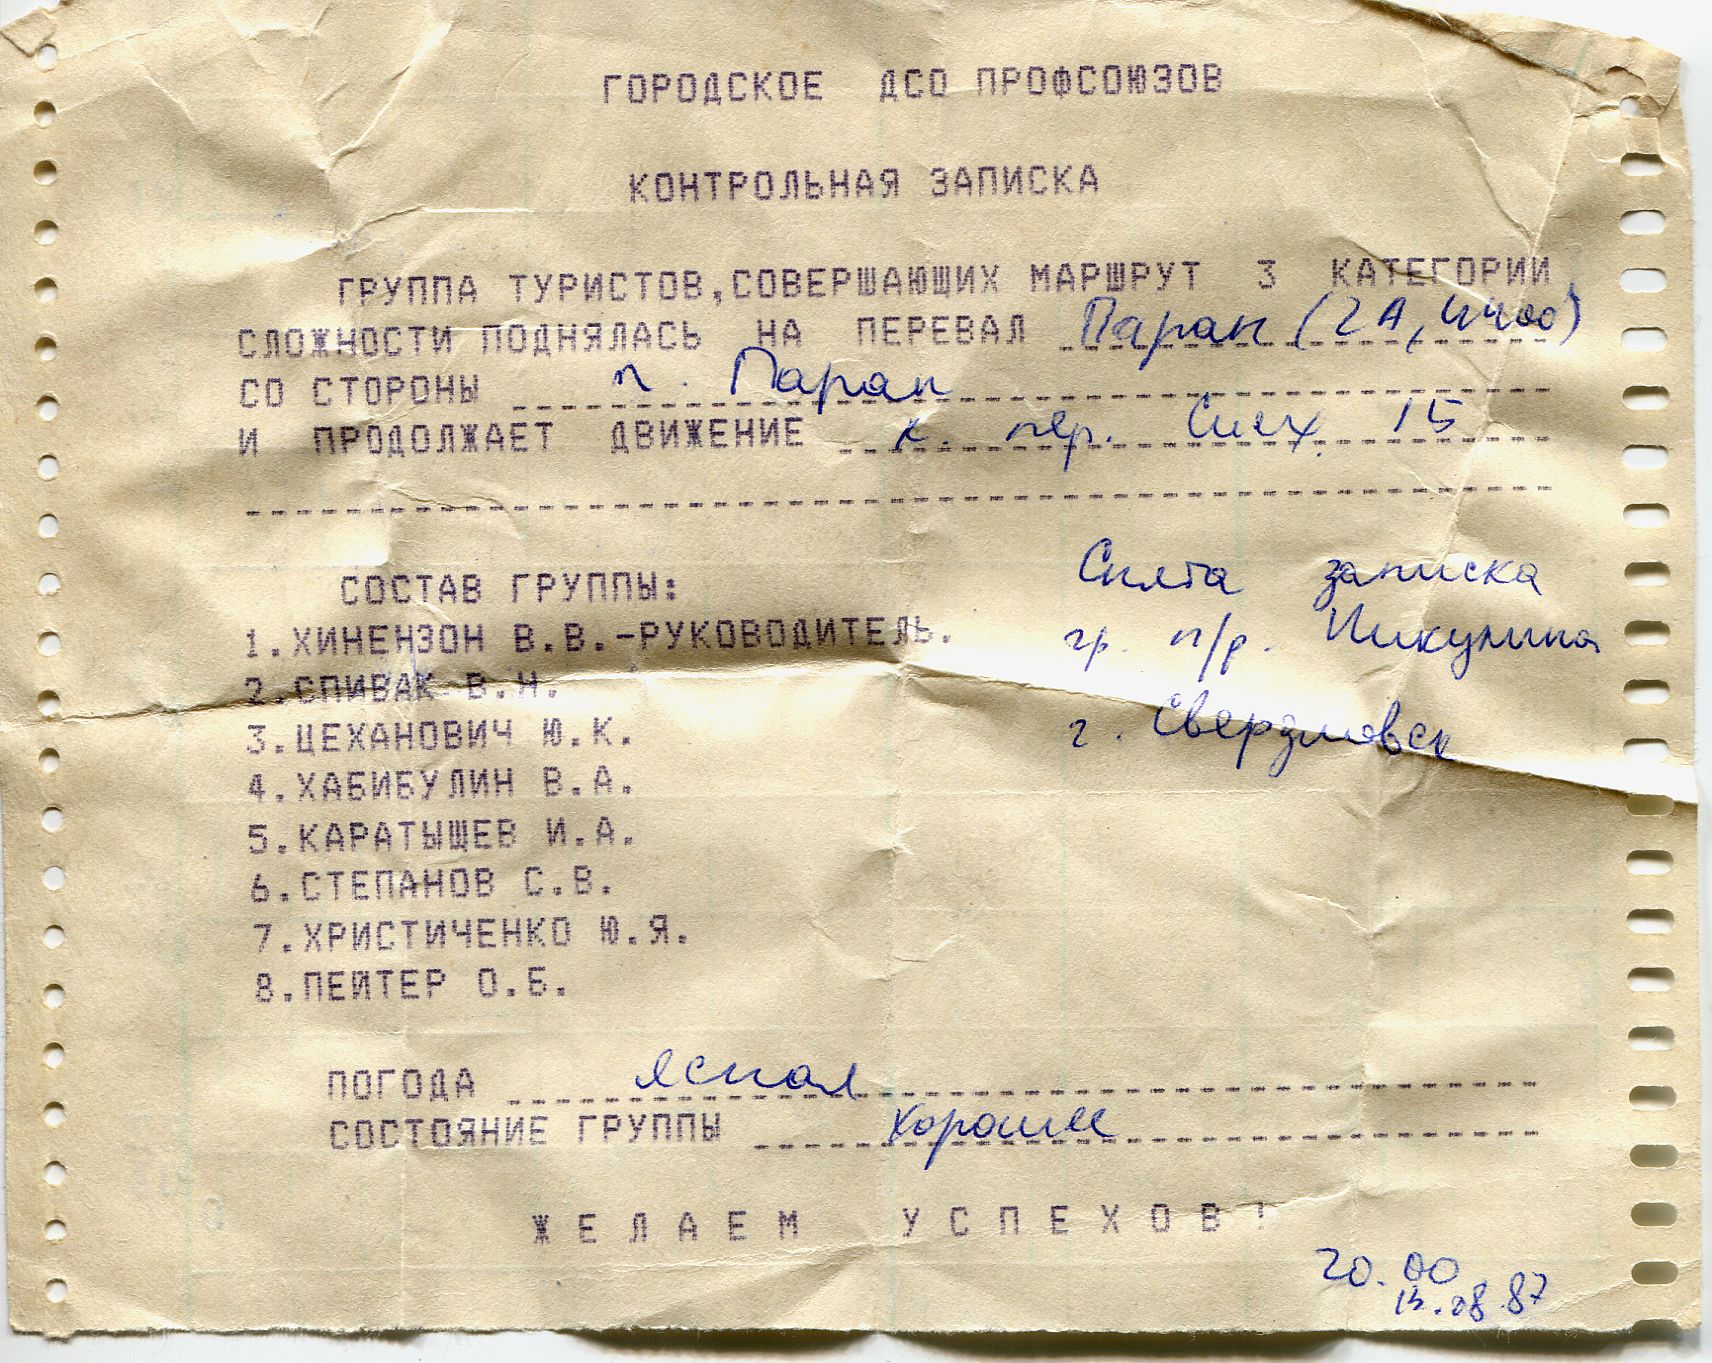 ГОРОДСКОЕ ДСО ПРОФСОЮЗОВ
КОНТРОЛЬНАЯ ЗАПИСКА
ГРУППА ТУРИСТОВ,СОВЕРШАЮЩИХ МАРШРУТ 3 КАТЕГОРИИ
СЛОЖНОСТИ ПОДНЯЛАСЬ НА ПЕРЕВАЛ Паран (2А, 4400)
СО СТОРОНЫ л. Паран
И ПРОДОЛЖАЕТ ДВИЖЕНИЕ к пер. 15
СОСТАВ ГРУППЫ:
1.ХИНЕНЗОН В.В.-РУКОВОДИТЕЛЬ.
2.СПИВАК В.Н.
3.ЦЕХАНОВИЧ Ю.К.
4.ХАБИБУЛИН В.А.
5.КАРАТЫЩЕВ И.А.
6.СТЕПАНОВ С.В.
7.ХРИСТИЧЕНКО Ю.Я.
8.ПЕЙТЕР О.Б.
Снята записка
гр. п/р. Пикулина
г. Свердловск
ПОГОДА ясная
СОСТОЯНИЕ ГРУППЫ хорошее
ЖЕЛАЕМ УСПЕХОВ!
20.00
.08.87